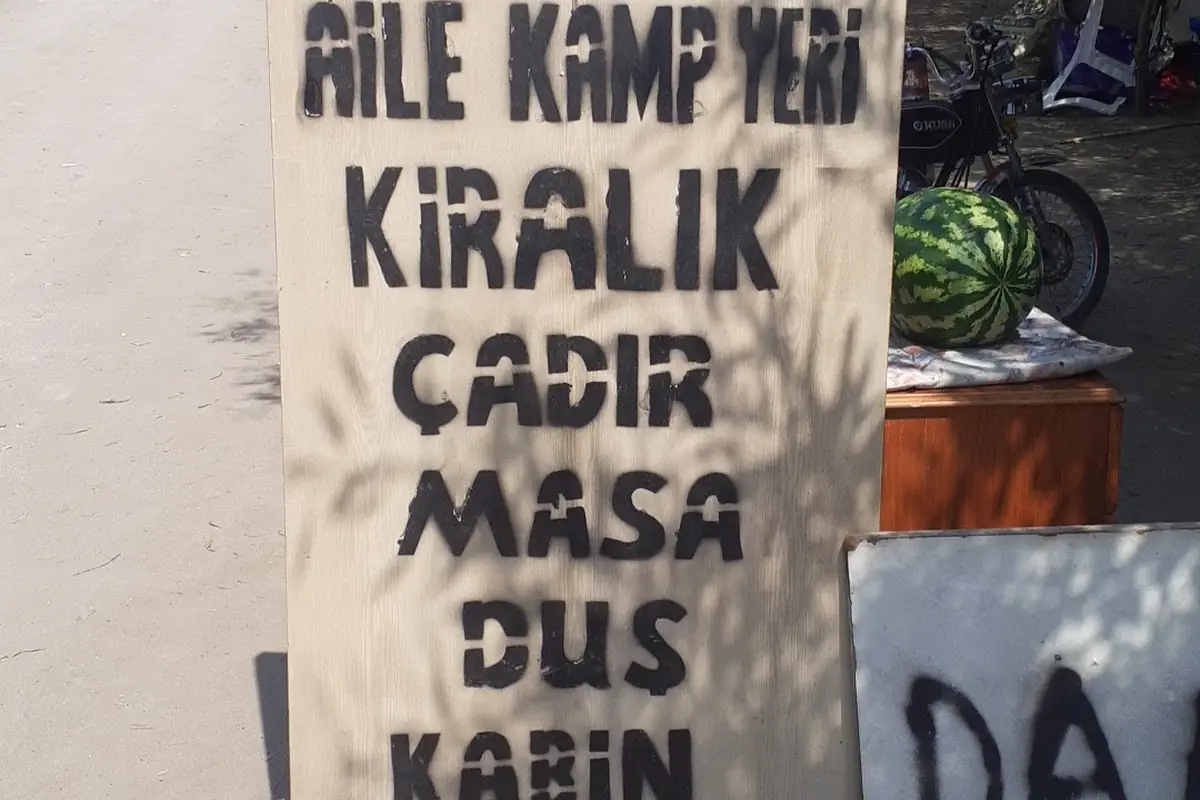 AİLE KAMP YERİ
KİRALIK
ÇADIR
MASA
DUŞ
KABİN
KUBA
DA